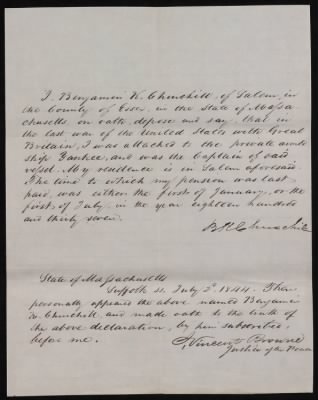 I, Benjamin K. Churchill, of Salem, in
the County of Essex, in the State of Massa-
chusetts, on oath, depose and say that in
the last war of the United States with Great
Britain, I was attached to the private armed
ship Yankee, and was the Captain of said
vessel. My residence is in Salem aforesaid.
The time to which my pension was last
paid, was either the first of January, or the
first of July, in the year eighteen hundred
and thirty seven.
B K Churchill
State of Massachusetts
Suffolk ss. July 2d 1844. Then
personally appeared the above named Benjamin
K. Churchill, and made oath to the truth of
the above declaration, by him subscribed,
before me.
Vincent Browne
Justice of the Peace